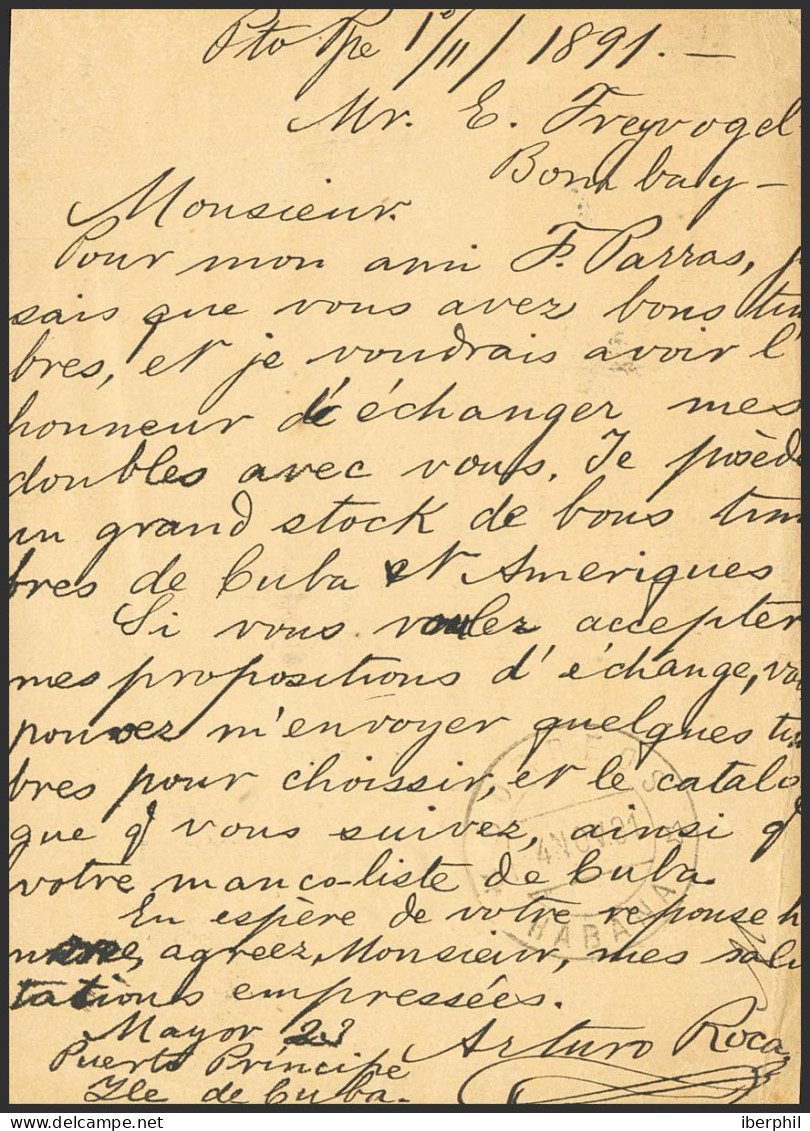 Pto Ppe 1º/11/1891.—
Mr. E. Freyvogel
Bombay—
Monsieur.
Pour mon ami F. Parras, j
sais que vous avez bons tim
bres, et je voudrais avoir l'
honneur d'échanger mes
doubles avec vous. Je posède
un grand stock de bons tim
bres de Cuba et Ameriques
Si vous voulez accepter
mes propositions d'échange, vou
pouvez m'envoyer quelques tim
bres pour choissir, et le catalo
gue q vous suivez, ainsi q
votre manco-liste de Cuba.
En espère de votre reponse h
agreez, Monsieur, mes salu
tations empressées.
Mayor 23 Arturo Roca
Puerto Principe
Ile de Cuba.
CORREOS
4 NOV 91
HABANA
iMe.com
iberphil